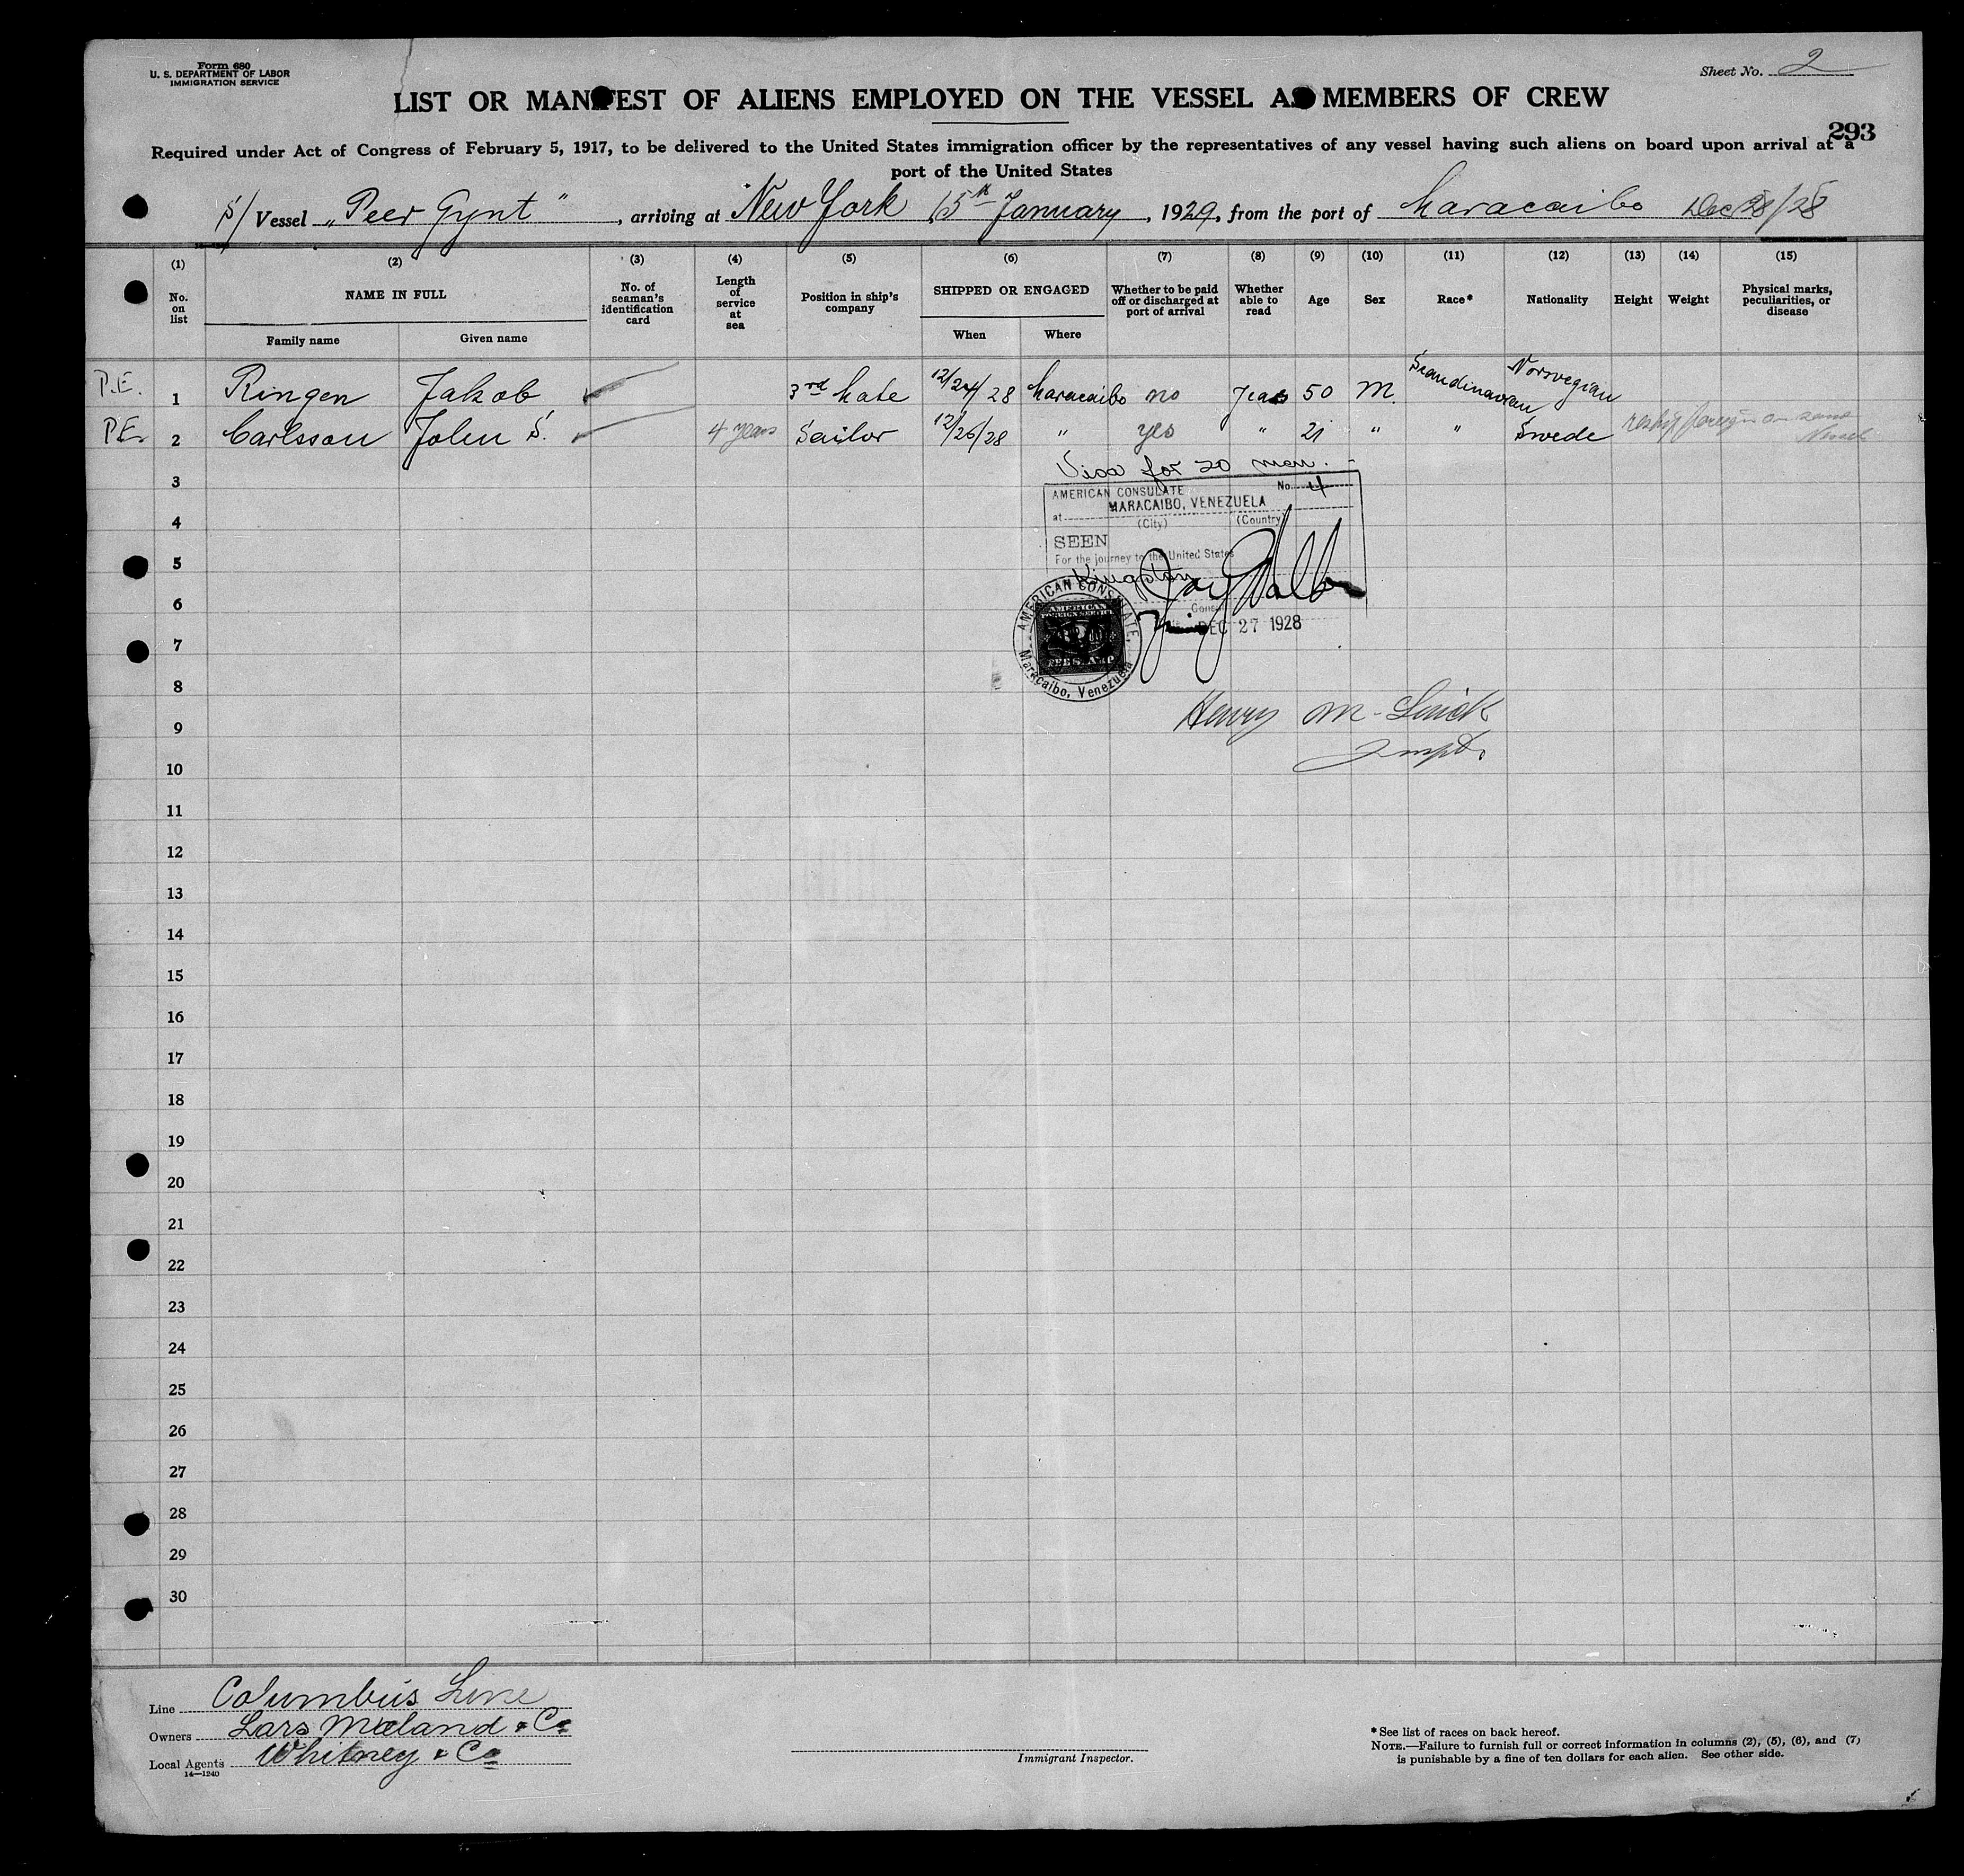 Form 680
U. S. DEPARTMENT OF LABOR
IMMIGRATION SERVICE
Sheet No. 2
LIST OR MANIFEST OF ALIENS EMPLOYED ON THE VESSEL AS MEMBERS OF CREW
293
Required under Act of Congress of February 5, 1917, to be delivered to the United States immigration officer by the representatives of any vessel having such aliens on board upon arrival at a
port of the United States
S/ Vessel „Peer Gynt", arriving at New York 15th January, 1929, from the port of Maracaibo Dec 28/28
(1) (2) (3) (4) (5) (6) (7) (8) (9) (10) (11) (12) (13) (14) (15)
No. on list
NAME IN FULL
Family name
Given name
No. of seaman's identification card
Length of service at sea
Position in ship's company
SHIPPED OR ENGAGED
When
Where
Whether to be paid off or discharged at port of arrival
Whether able to read
Age
Sex
Race*
Nationality
Height
Weight
Physical marks, peculiarities, or disease
P.E. 1 Ringen Jakob 3rd Mate 12/24/28 Maracaibo no Yeas 50 M. Scandinavian Norwegian
P.E. 2 Carlsson John S. 4 years Sailor 12/26/28 " yes " 21 " " Swede reship foreign on same Vessel
Visa for 20 men.
3
AMERICAN CONSULATE No. 4
at MARACAIBO, VENEZUELA
4
(City) (Country)
SEEN
5
For the journey to the United States
Kingston
6
Consul
DEC 27 1928
AMERICAN CONSULATE, Maracaibo, Venezuela
AMERICAN
FOREIGN SERVICE
FEE STAMP
7
8
Henry M.
9
10
11
12
13
14
15
16
17
18
19
20
21
22
23
24
25
26
27
28
29
30
Line Columbus Line
Owners Lars Mæland & Co
Local Agents Whitney & Co
14—1240
Immigrant Inspector.
* See list of races on back hereof.
NOTE.—Failure to furnish full or correct information in columns (2), (5), (6), and (7)
is punishable by a fine of ten dollars for each alien. See other side.